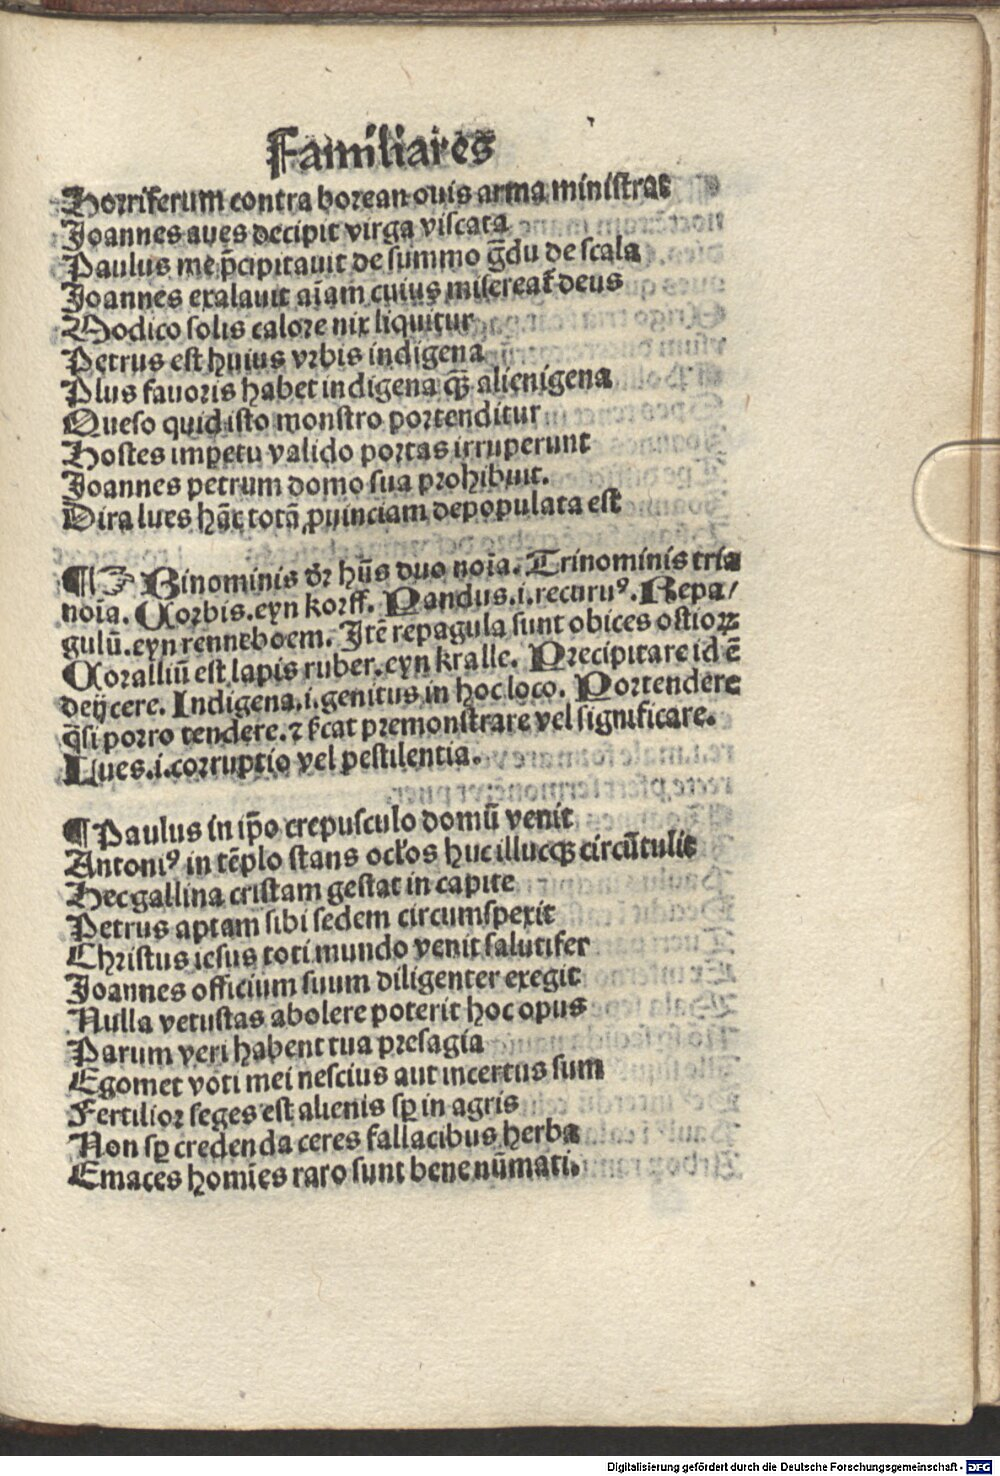 Familiares
Horriferum contra borean ouis arma ministrat
Joannes aues decipit virga viscata
Paulus me p̄cipitauit de summo g̃du de scala
Joannes exalauit aĩam cuius misereat᷑ deus
Modico solis calore nix liquitur
Petrus est huius vrbis indigena
Plus fauoris habet indigena q̃ꝫ alienigena
Queso quid isto monstro portenditur
Hostes impetu valido portas irruperunt
Joannes petrum domo sua prohibuit.
Dira lues hãc totã ꝓuinciam depopulata est
¶☞ Binominis dr̃ hñs duo noĩa. Trinominis tria
noĩa. Corbis. eyn korff. Pandus .i. recuruꝰ. Repa/
gulũ. eyn renneboem. Jtẽ repagula sunt obices ostioꝝ
Coralliũ est lapis ruber. eyn kralle. Precipitare id ẽ
deijcere. Indigena .i. genitus in hoc loco. Portendere
q̃si porro tendere. ⁊ sꝛcat premonstrare vel significare.
Lues .i. corruptio vel pestilentia.
¶ Paulus in ip̃o crepusculo domũ venit
Antoniꝰ in tẽplo stans ocl'os huc illucqꝫ circũtulit
Hec gallina cristam gestat in capite
Petrus aptam sibi sedem circumspexit
Christus iesus toti mundo venit salutifer
Joannes officium suum diligenter exegit
Nulla vetustas abolere poterit hoc opus
Parum veri habent tua presagia
Egomet voti mei nescius aut incertus sum
Fertilior seges est alienis sꝑ in agris
Non sꝑ credenda ceres fallacibus herba
Emaces homĩes raro sunt bene nũmati.
Digitalisierung gefördert durch die Deutsche Forschungsgemeinschaft - DFG